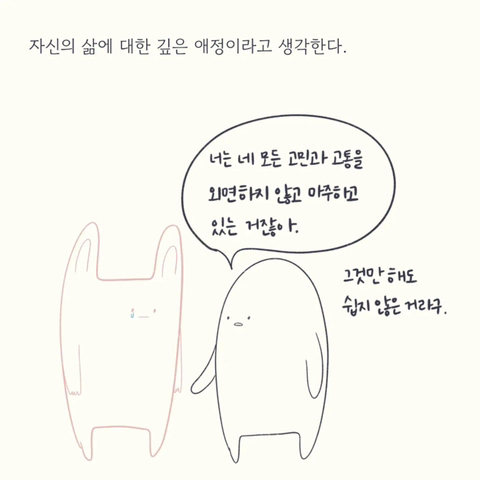 자신의 삶에 대한 깊은 애정이라고 생각한다.
너는 네 모든 고민과 고통을
외면하지 않고 마주하고
있는 거잖아.
그것만 해도
쉽지 않은 거라구.